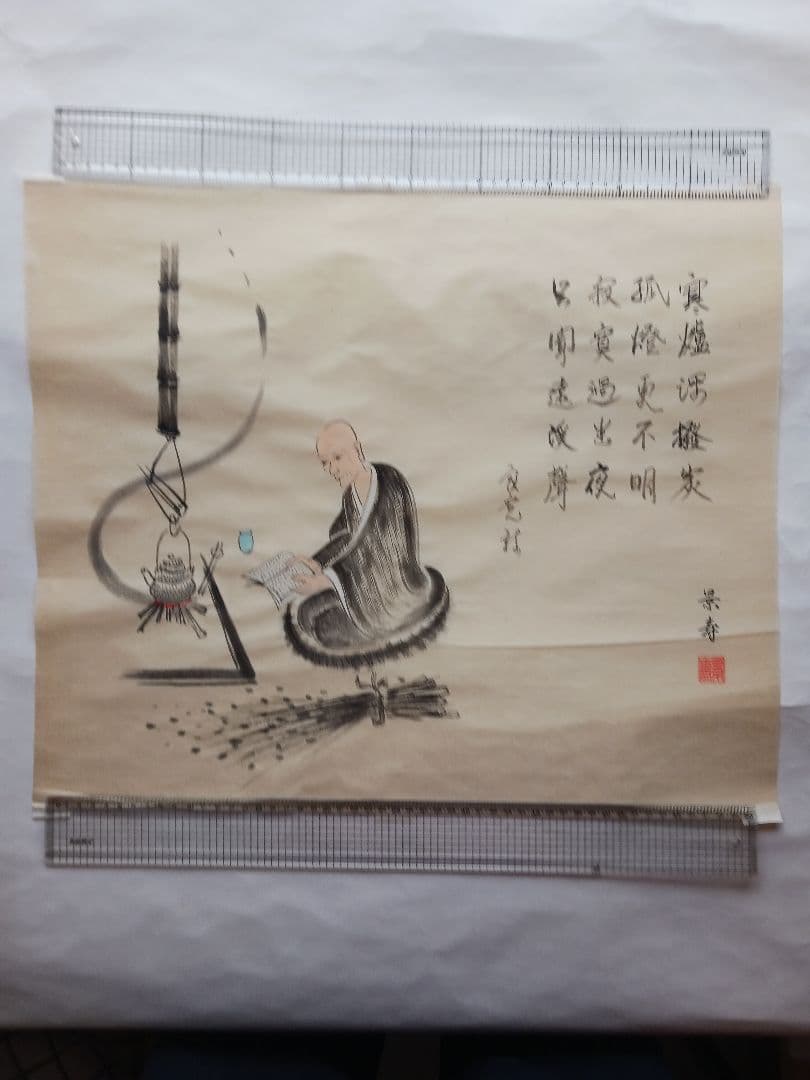 寒爐深撥炭
孤燈更不明
寂寞過半夜
只聞遠渓聲
良寛詩
景寿